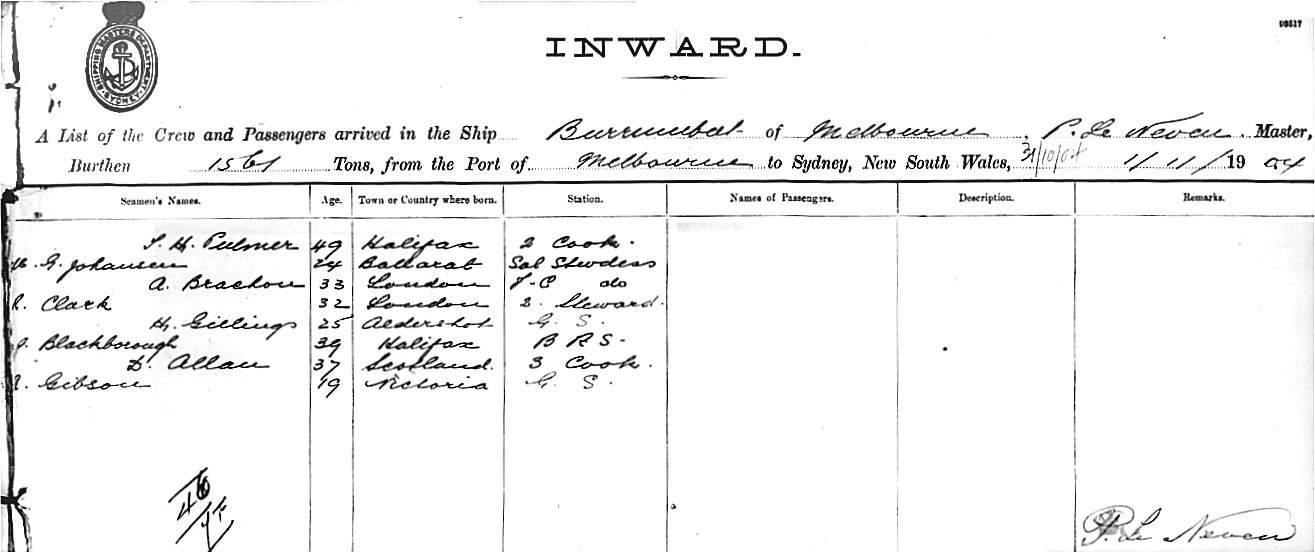 99517
SHIPPING MASTERS DEPARTMENT
SYDNEY
INWARD.
A List of the Crew and Passengers arrived in the Ship Burrumbeet of Melbourne, P. Le Neven Master,
Burthen 1561 Tons, from the Port of Melbourne to Sydney, New South Wales, 31/10/04 1/11/1904
Seamen's Names. Age. Town or Country where born. Station. Names of Passengers. Description. Remarks.
S. H. Pulmer 49 Halifax 2 Cook.
G. Johansen 24 Ballarat Sal Stewdess
A. Brachou 33 London F-C do
Clark 32 London 2. Steward.
H. Gillings 25 Aldershot G. S.
J. Blackborough 39 Halifax B R S.
D. Allan 37 Scotland. 3 Cook.
Gibson 19 Victoria G. S.
P. Le Neven